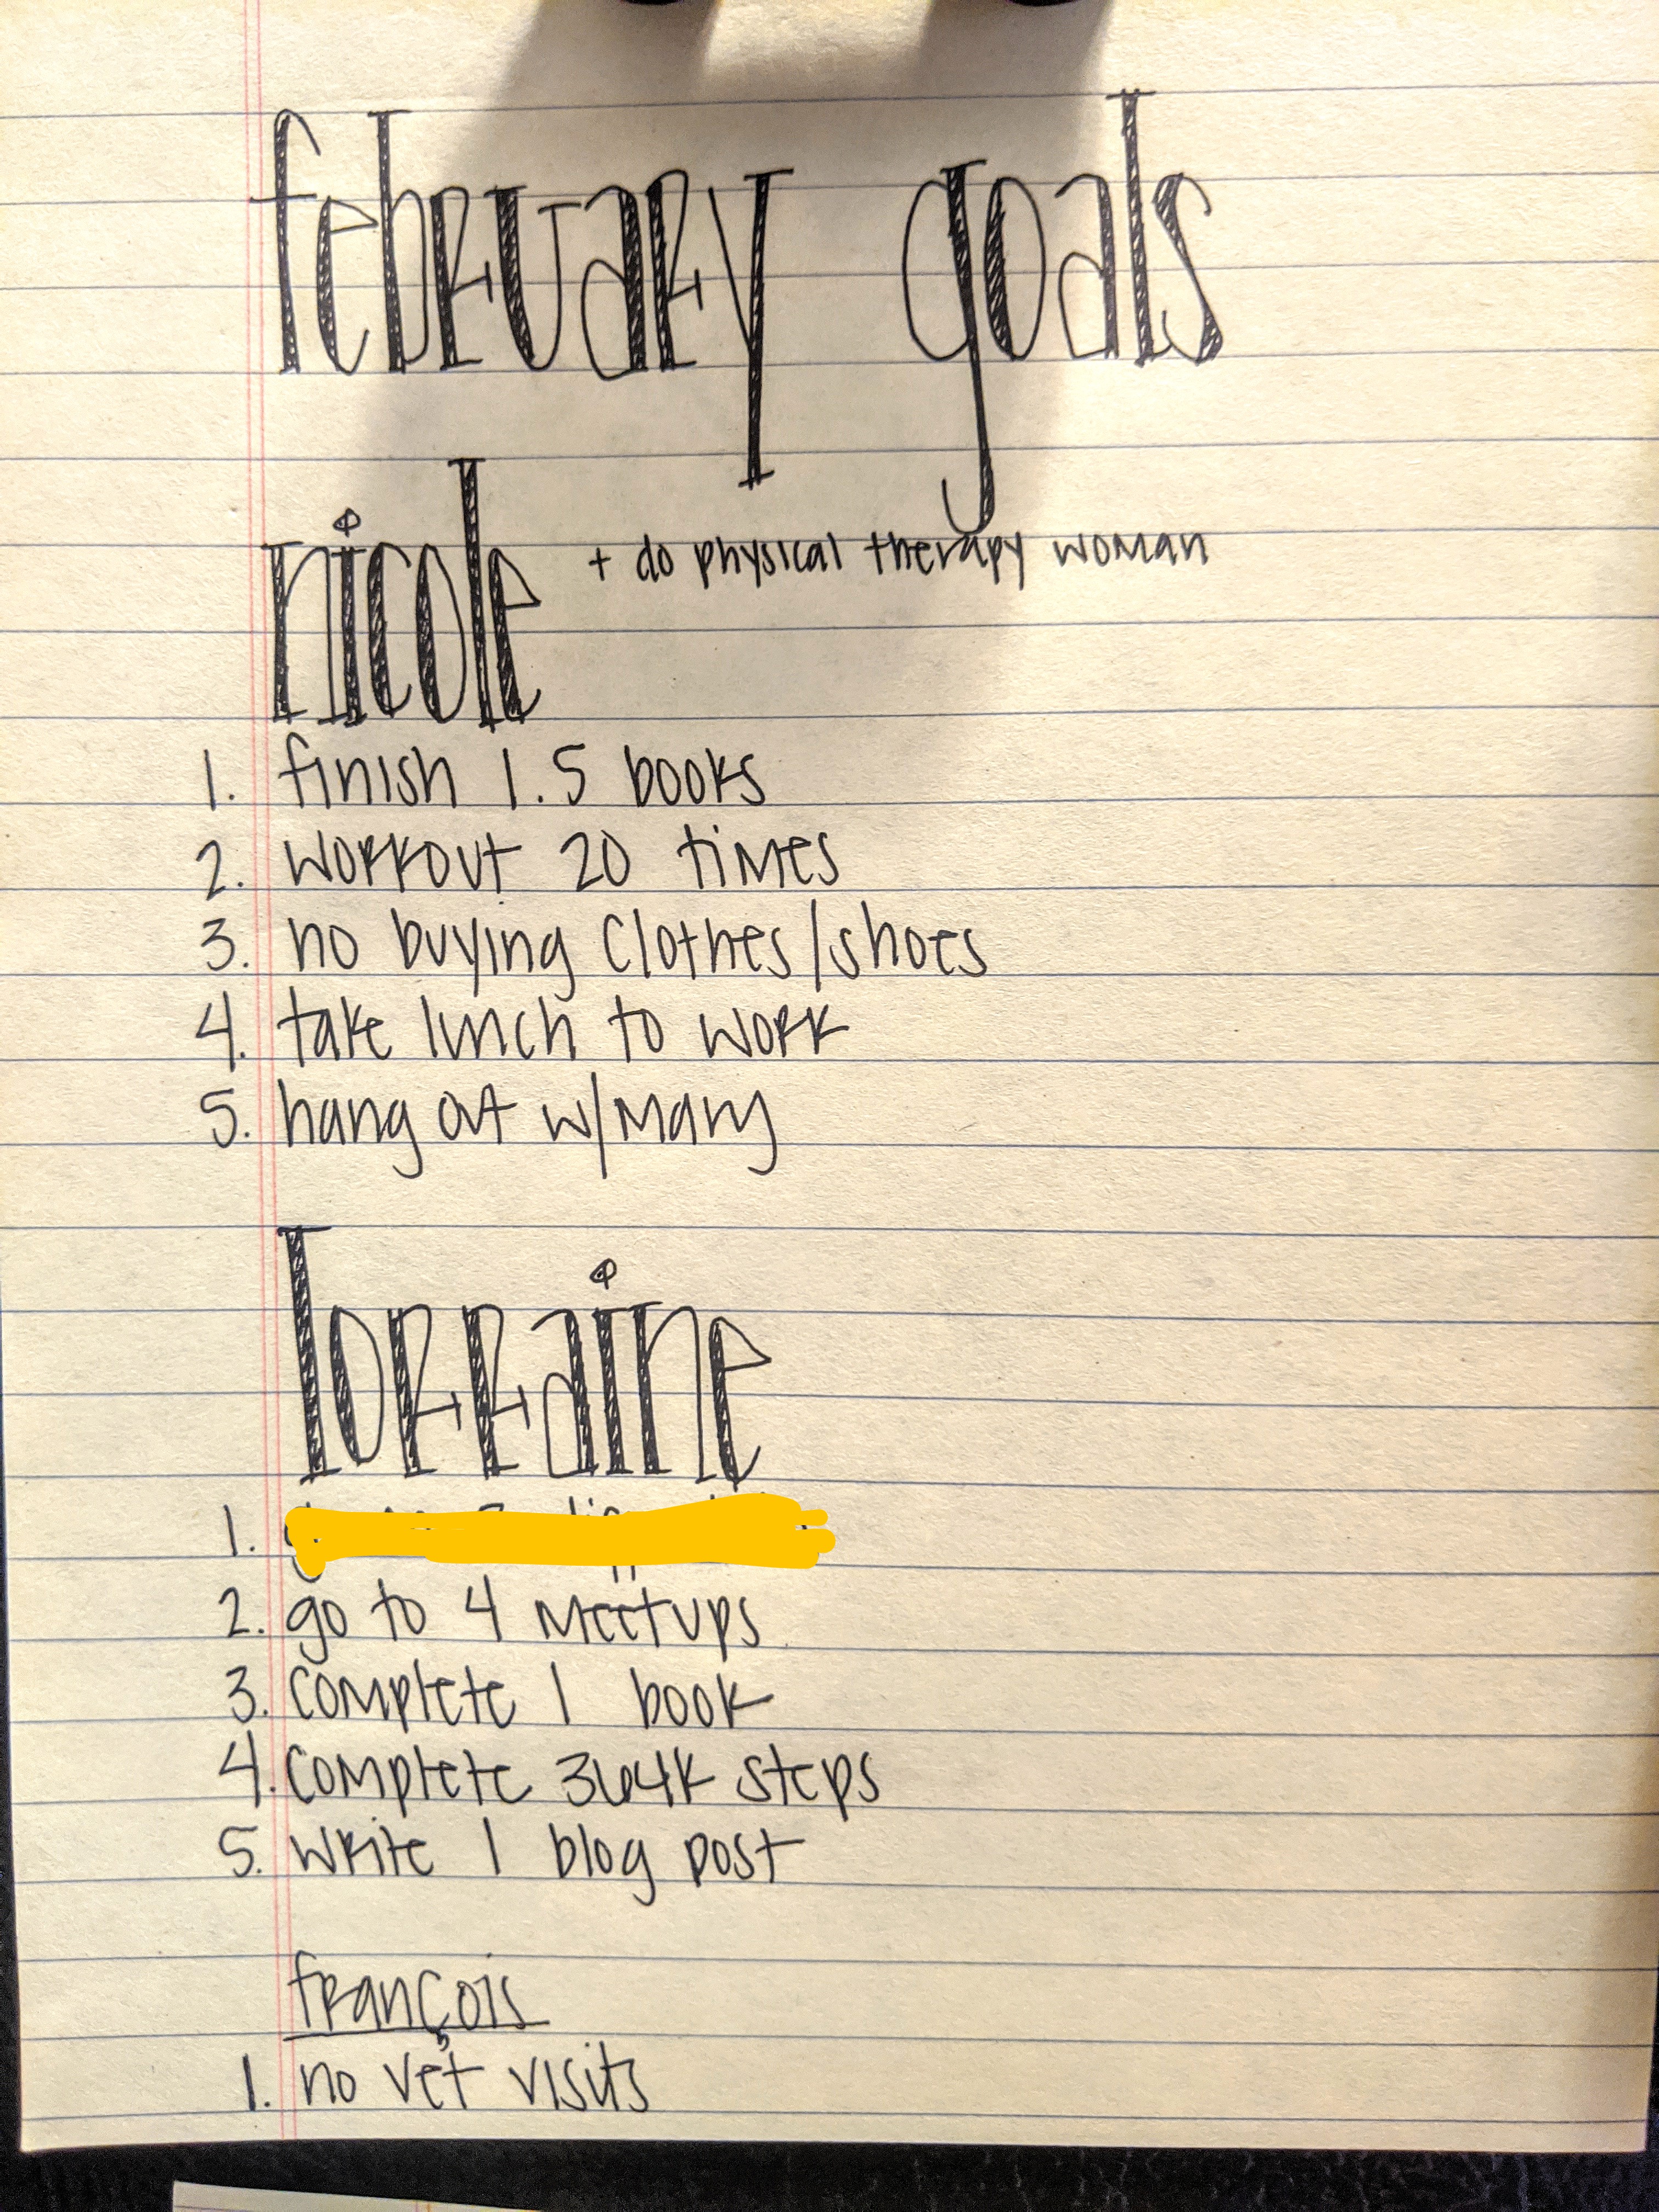 february goals
nicole + do physical therapy woman
1. finish 1.5 books
2. workout 20 times
3. no buying clothes/shoes
4. take lunch to work
5. hang out w/mary
lorraine
1.
2. go to 4 meetups
3. complete 1 book
4. complete 364k steps
5. write 1 blog post
françois
1. no vet visits